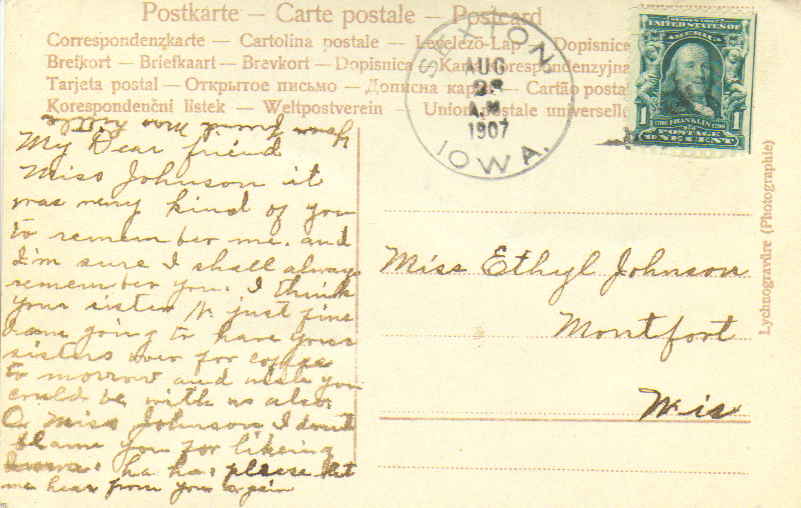 Postkarte — Carte postale — Postcard
Correspondenzkarte — Cartolina postale — Levelező-Lap — Dopisnice
Brefkort — Briefkaart — Brevkort — Dopisnica — Karta Korespondenzyjna
Tarjeta postal — Открытое письмо — Дописна карта — Cartão postal
Korespondenční lístek — Weltpostverein — Union postale universelle
SEXTON
AUG
A.M.
1907
IOWA.
UNITED STATES OF
AMERICA
1 FRANKLIN 1
POSTAGE
ONE CENT
your friend
My Dear friend
Miss Johnson it
was very kind of you
to remember me. and
I'm sure I shall always
remember you. I think
your sister is just fine
I am going to have your
sisters over for coffee
to morrow and wish you
could be with us also.
O Miss Johnson I don't
blame you for likeing
Iowa. ha ha. please let
me hear from you again
Miss Ethyl Johnson
Montfort
Wis
Lychnogravüre (Photographie)